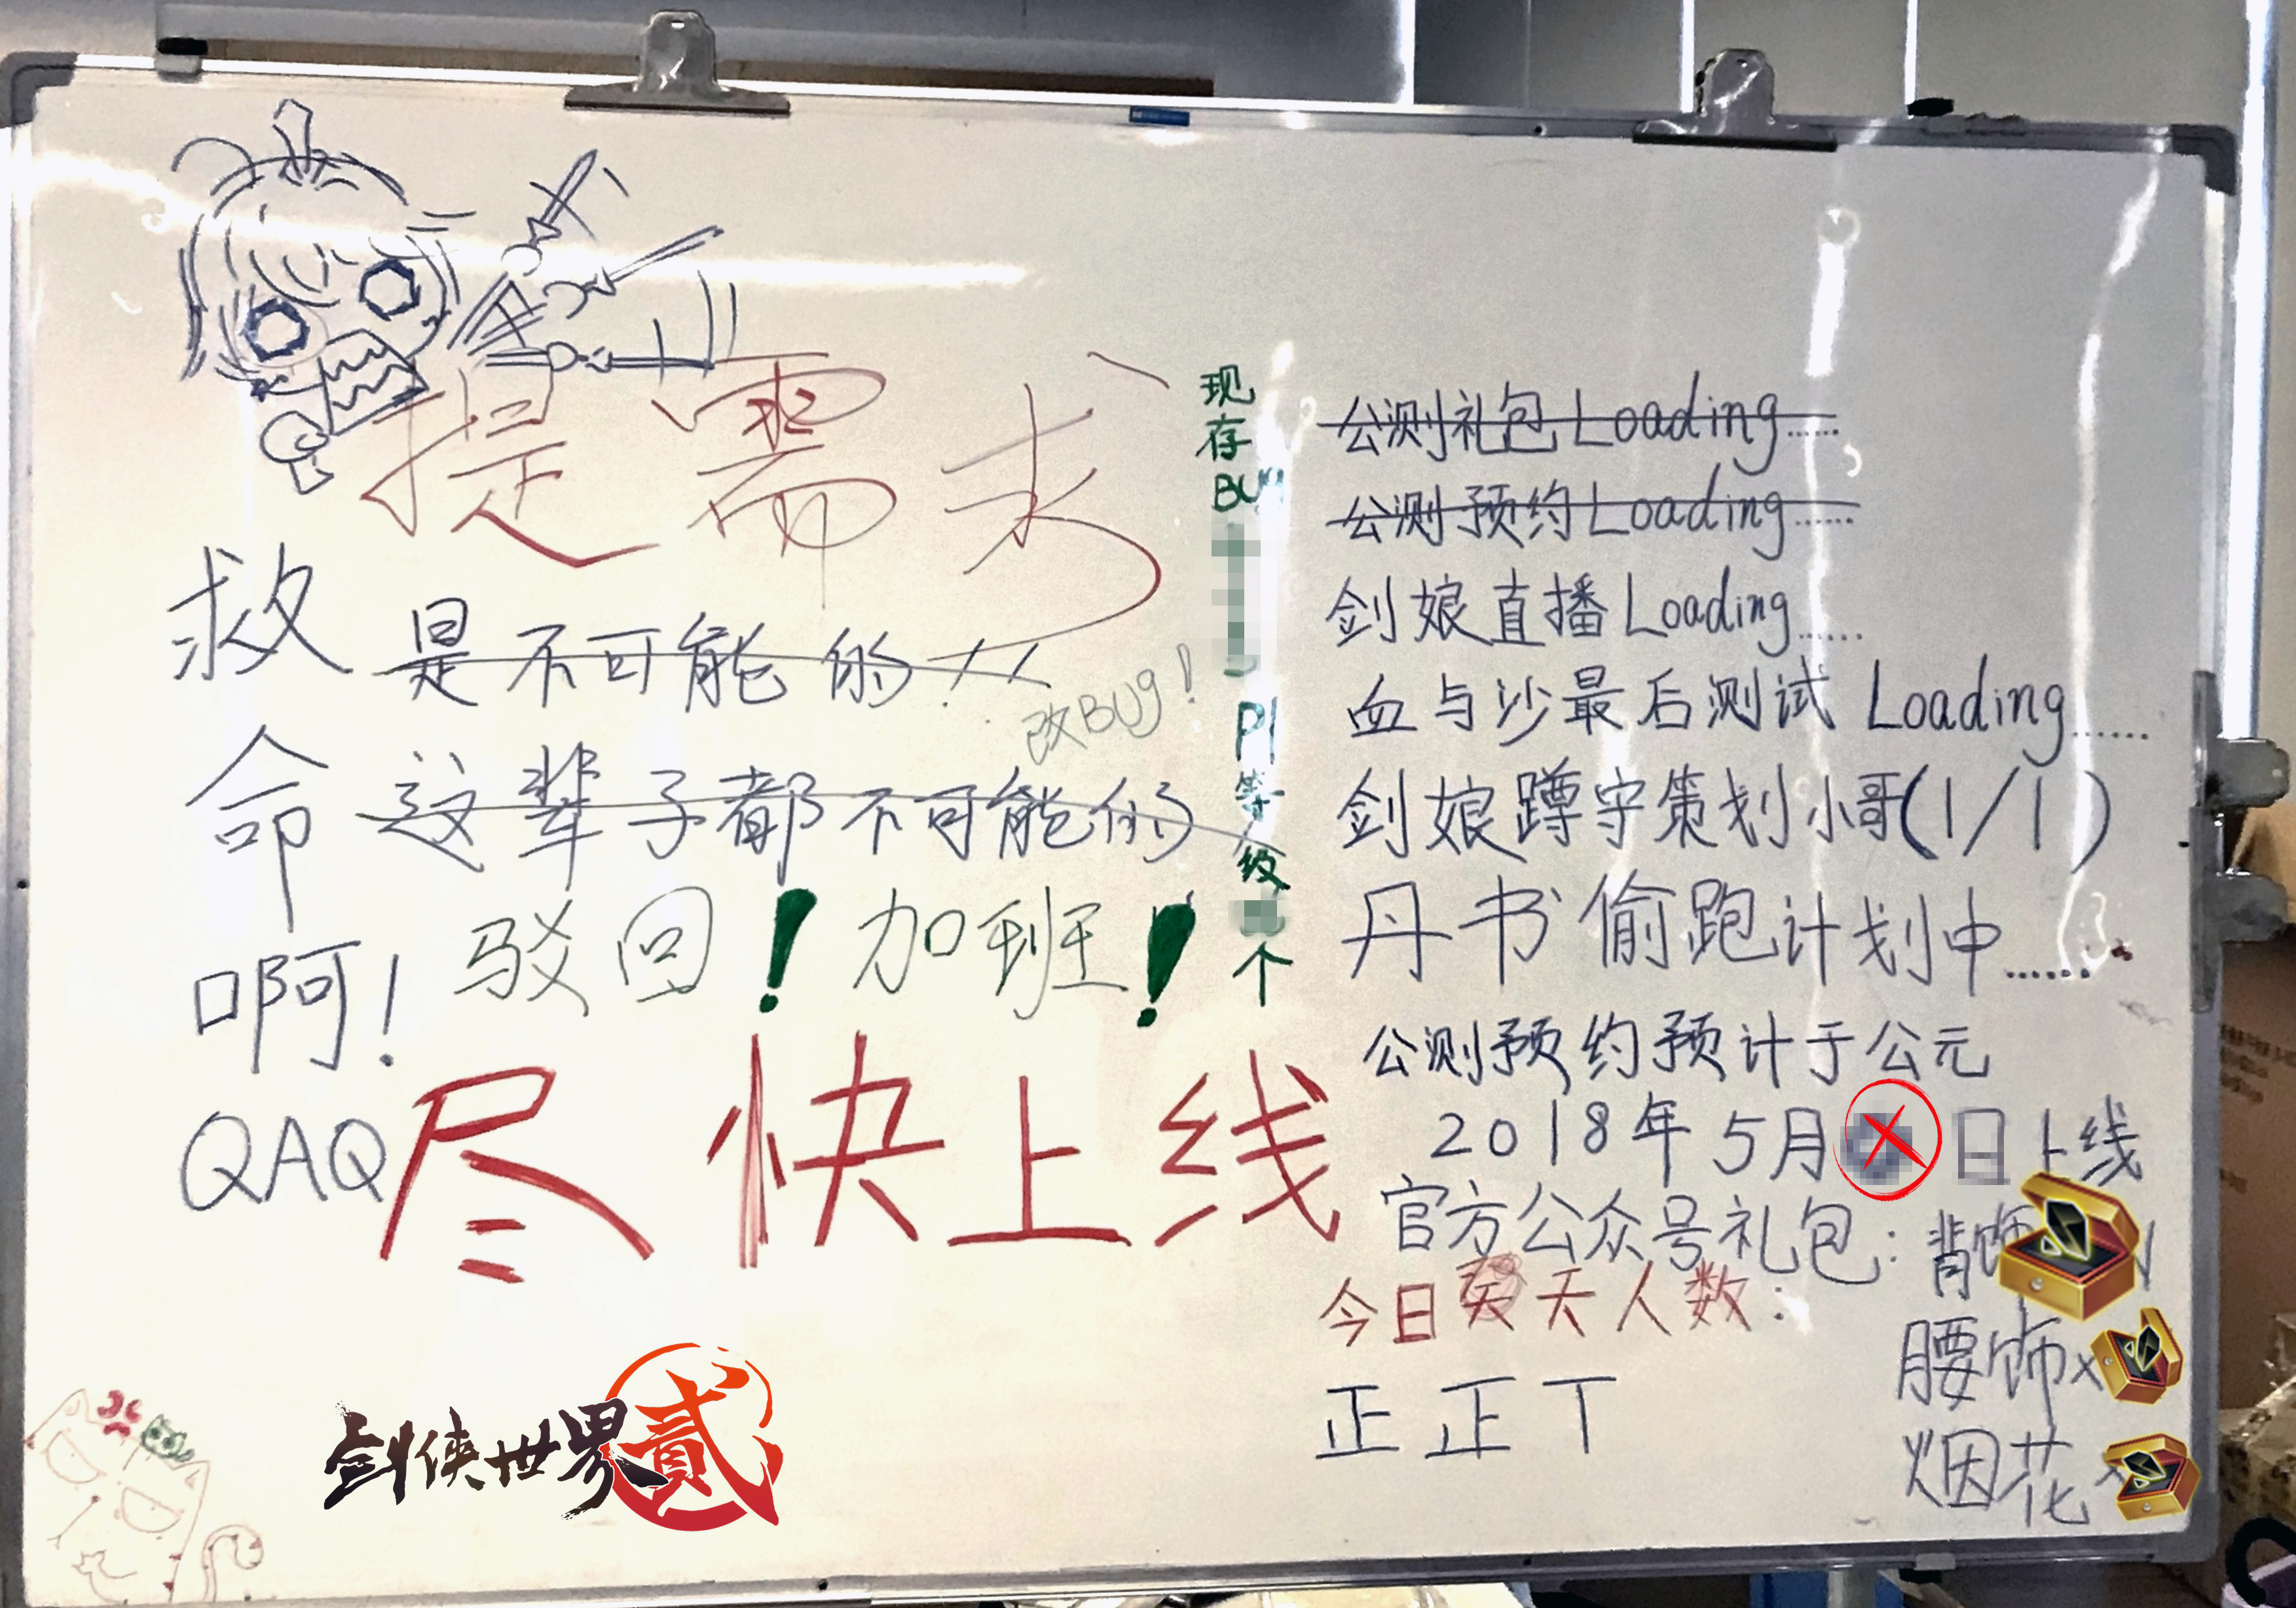 提需求
救命啊!
QAQ
是不可能的!!
改BUG!
这辈子都不可能的
驳回!加班!
尽快上线
现存BUG
P1等级
个
公测礼包Loading......
公测预约Loading......
剑娘直播Loading......
血与沙最后测试 Loading......
剑娘蹲守策划小哥(1/1)
丹书偷跑计划中......
公测预约预计于公元
2018年5月 日上线
官方公众号礼包:背饰
腰饰x
烟花x
今日 天人数:
正正丅
剑侠世界贰